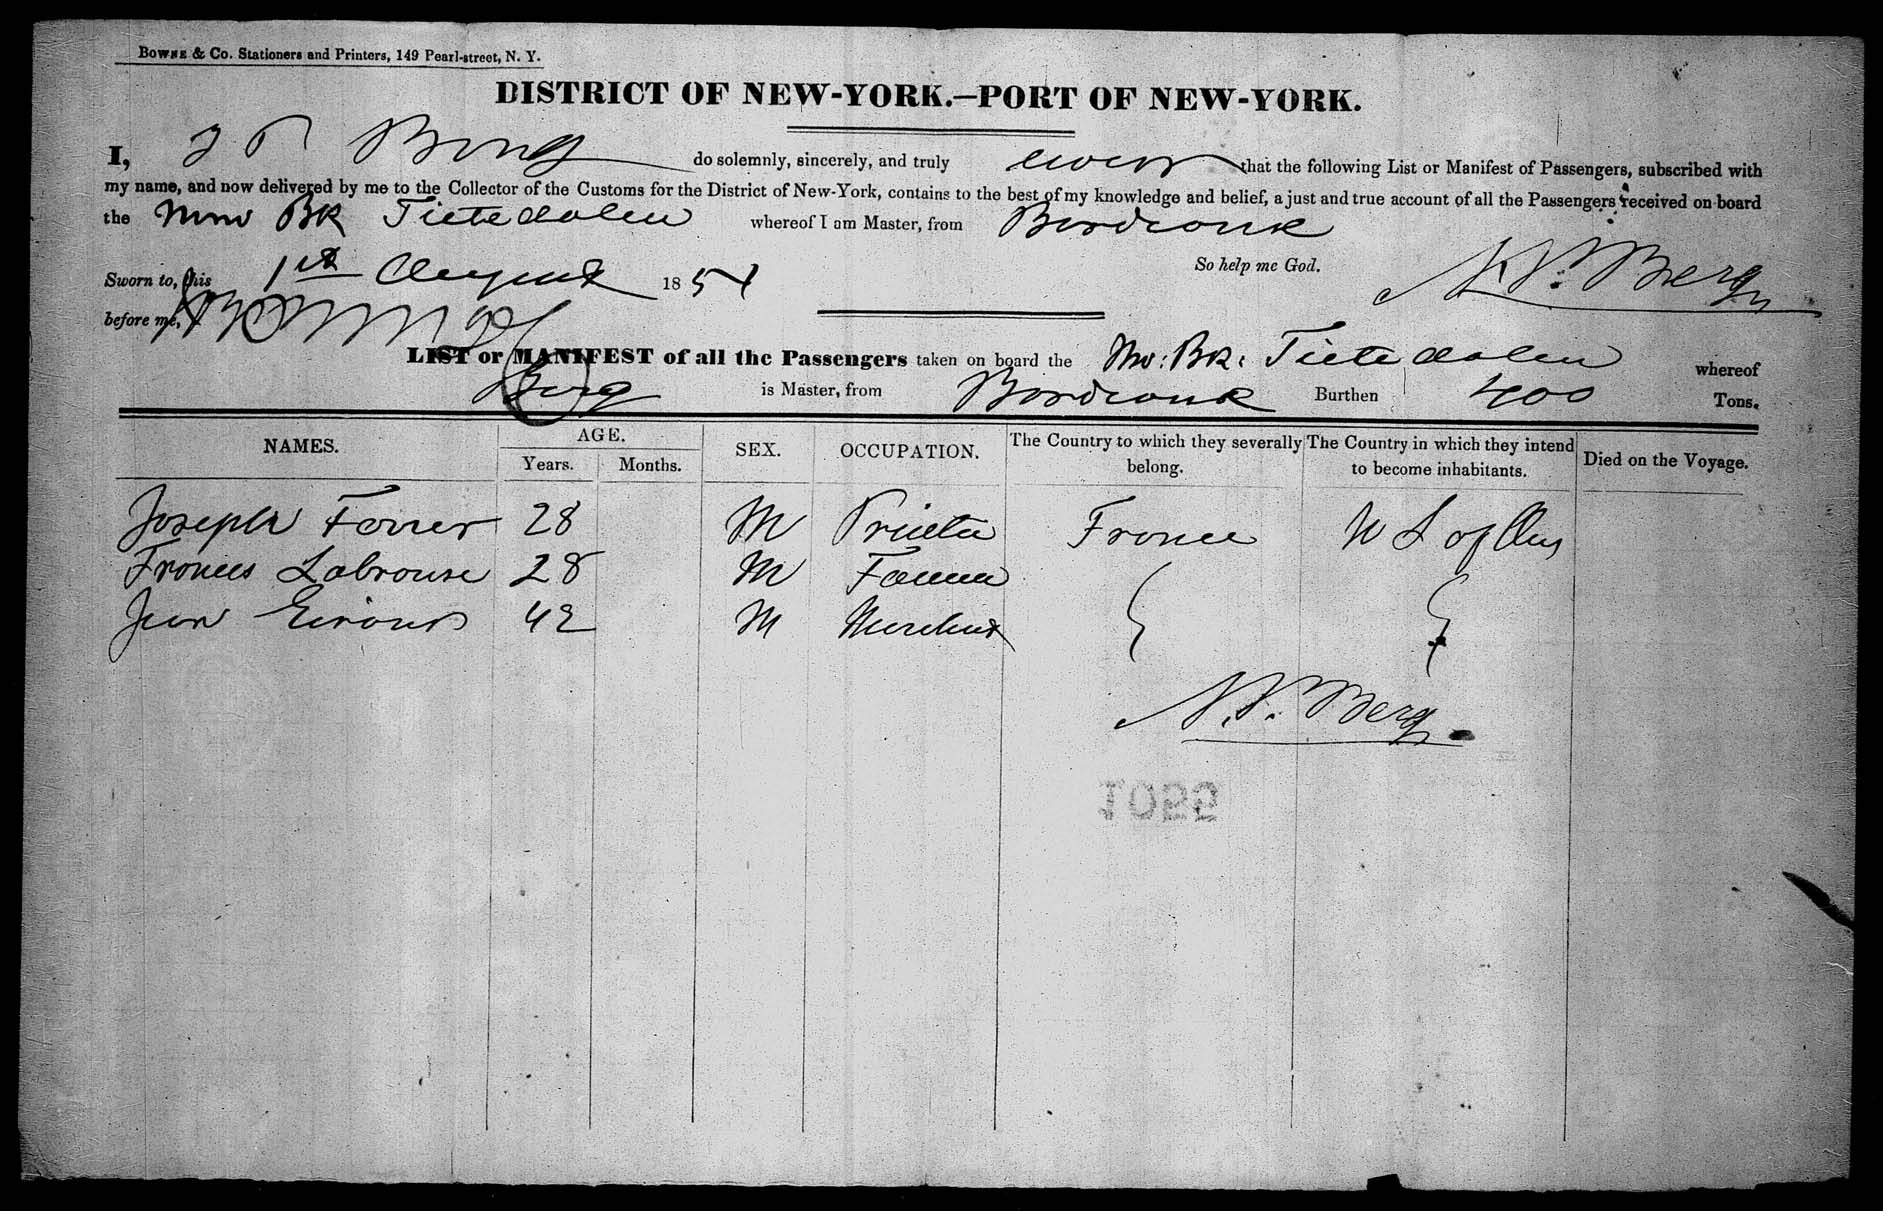 BOWNE & Co. Stationers and Printers, 149 Pearl-street, N. Y.
DISTRICT OF NEW-YORK.—PORT OF NEW-YORK.
I, Berg do solemnly, sincerely, and truly swear that the following List or Manifest of Passengers, subscribed with
my name, and now delivered by me to the Collector of the Customs for the District of New-York, contains to the best of my knowledge and belief, a just and true account of all the Passengers received on board
the BK Tietedalen whereof I am Master, from Bordeaux
Sworn to, this 1st August 1854 So help me God. N. P. Berg
before me,
LIST or MANIFEST of all the Passengers taken on board the Bk: Tietedalen whereof
Berg is Master, from Bordeaux Burthen 400 Tons.
NAMES. AGE. SEX. OCCUPATION. The Country to which they severally belong. The Country in which they intend to become inhabitants. Died on the Voyage.
Years. Months.
Joseph 28 M Printer France U S of
Frances Labrouse 28 M Farmer
Jean 42 M Merchant
N. P. Berg
1055